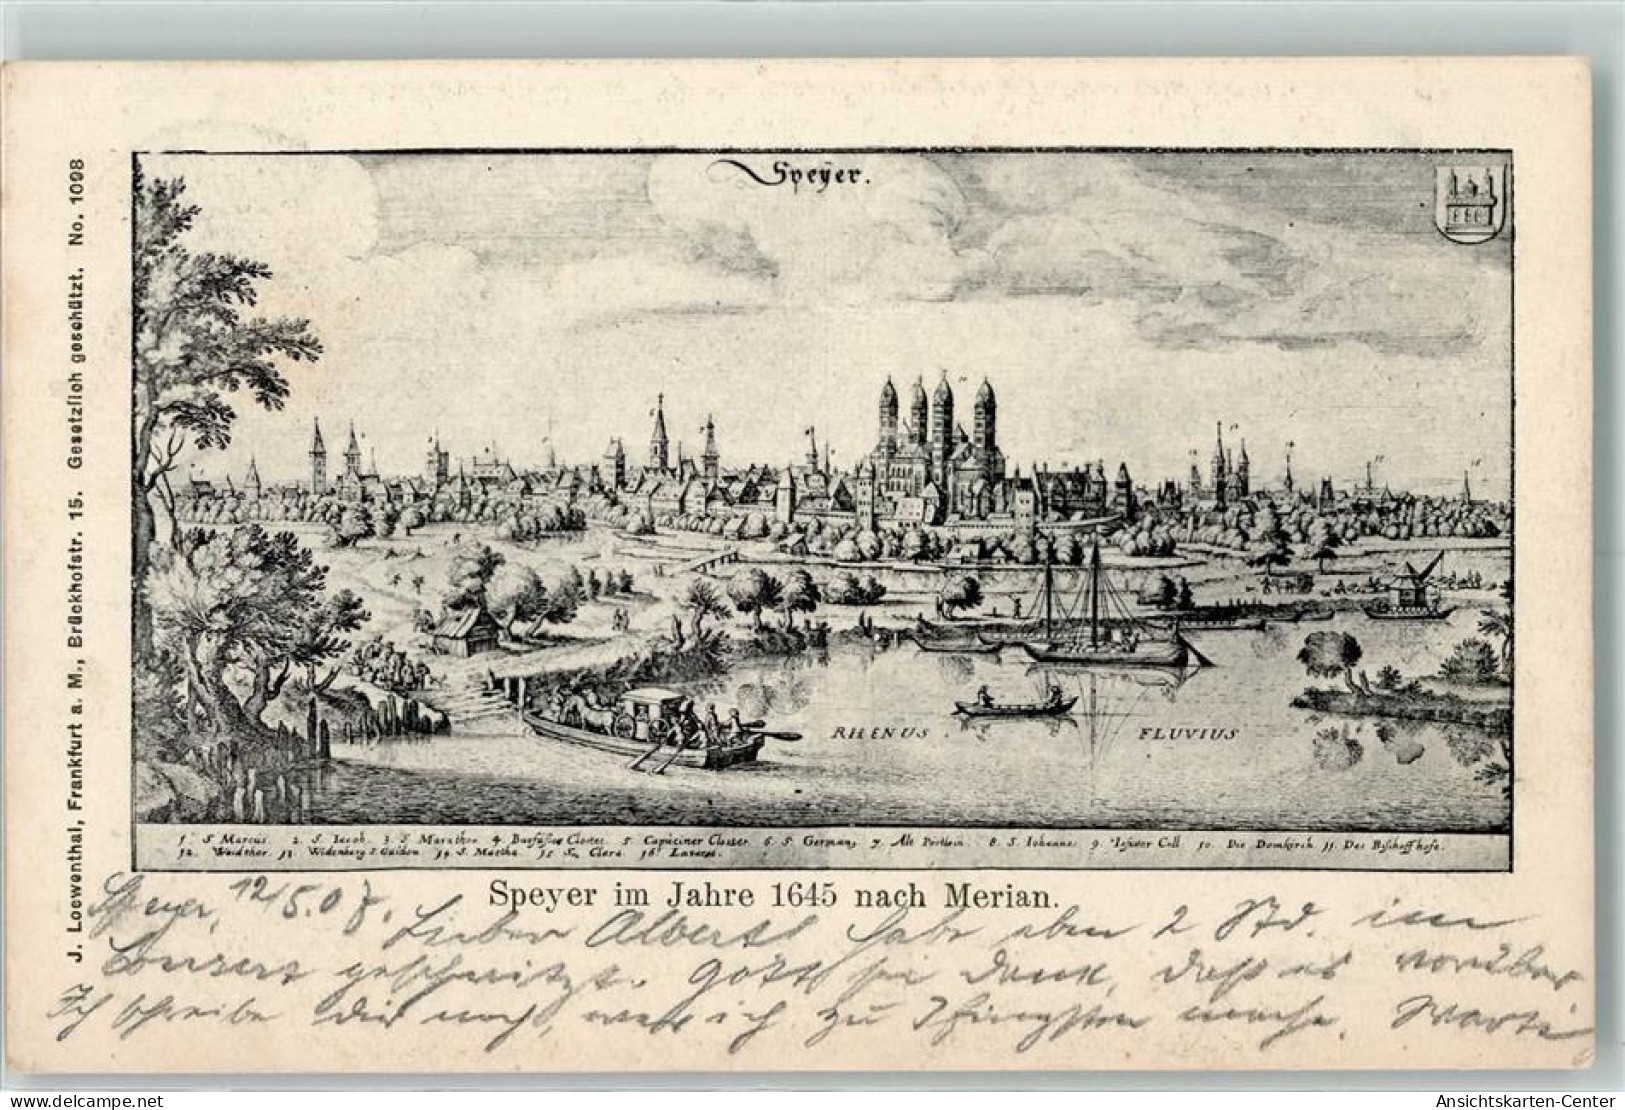 Speyer.
J. Loewenthal, Frankfurt a. M., Brückhofstr. 15. Gesetzlich geschützt. No. 1098
RHENUS FLUVIUS
1. S. Marcus. 2. S. Iacob. 3. S. 4. Barfüßer Closter. 5. Capuciner Closter. 6. S. German, 7. Alt Pörtlein. 8. S. Iohannes. 9. Iesuiter Coll. 10. Die Domkirch. 11. Des Bischoff hofe.
12. Waidthor. 13. Widenberg S. Guidon. 14. S. Martha. 15. S. Clara. 16.
Speyer im Jahre 1645 nach Merian.
Speyer, 12/5.07. Lieber Albert! Habe eben 2 Std. im
Konzert geschwitzt. Gott sei Dank, daß es vorüber
Ich schreibe Dir noch, was ich zu Pfingsten mache.
delcampe.net
Ansichtskarten-Center